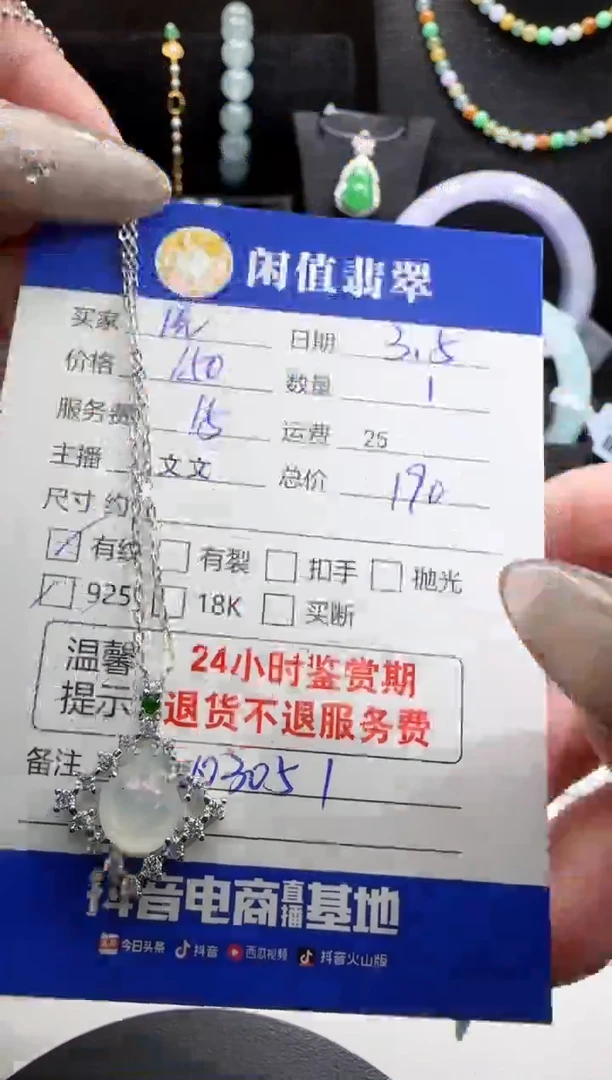 闲值翡翠
买家 日期 3.5
价格 150 数量 1
服务费 15 运费 25
主播 文文 总价 190
尺寸 约
有纹 有裂 扣手 抛光
925 18K 买断
温馨提示
24小时鉴赏期
退货不退服务费
备注 03051
抖音电商直播基地
今日头条 抖音 西瓜视频 抖音火山版